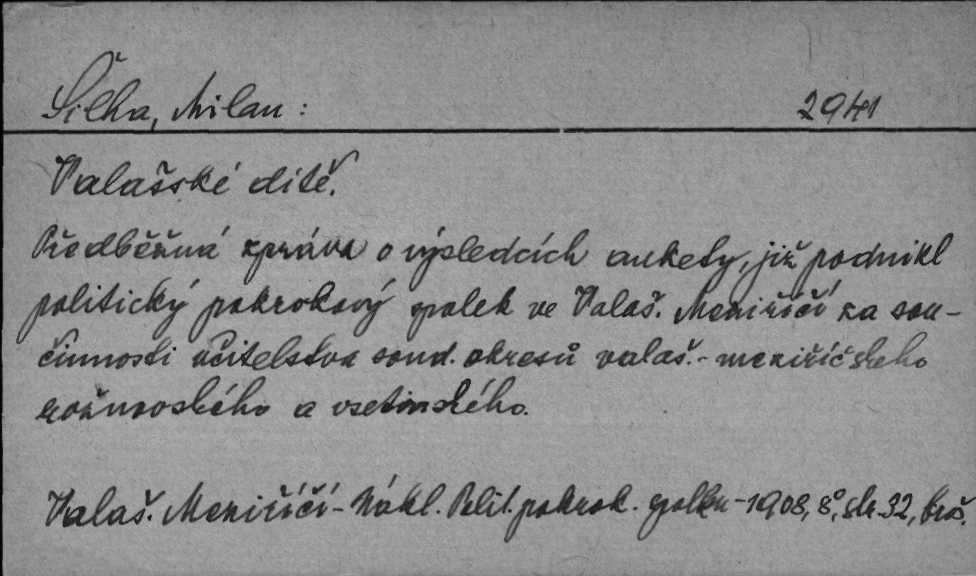 Šilha, Milan: 2941
Valašské dítě.
Předběžná zpráva o výsledcích ankety, již podnikl
politický pokrokový spolek ve Valaš. Meziříčí za sou-
činnosti učitelstva soud. okresů valaš.-meziříčského
rožnovského a vsetínského.
Valaš. Meziříčí - Nákl. Polit. pokrok. spolku - 1908, 8°, str. 32, brož.